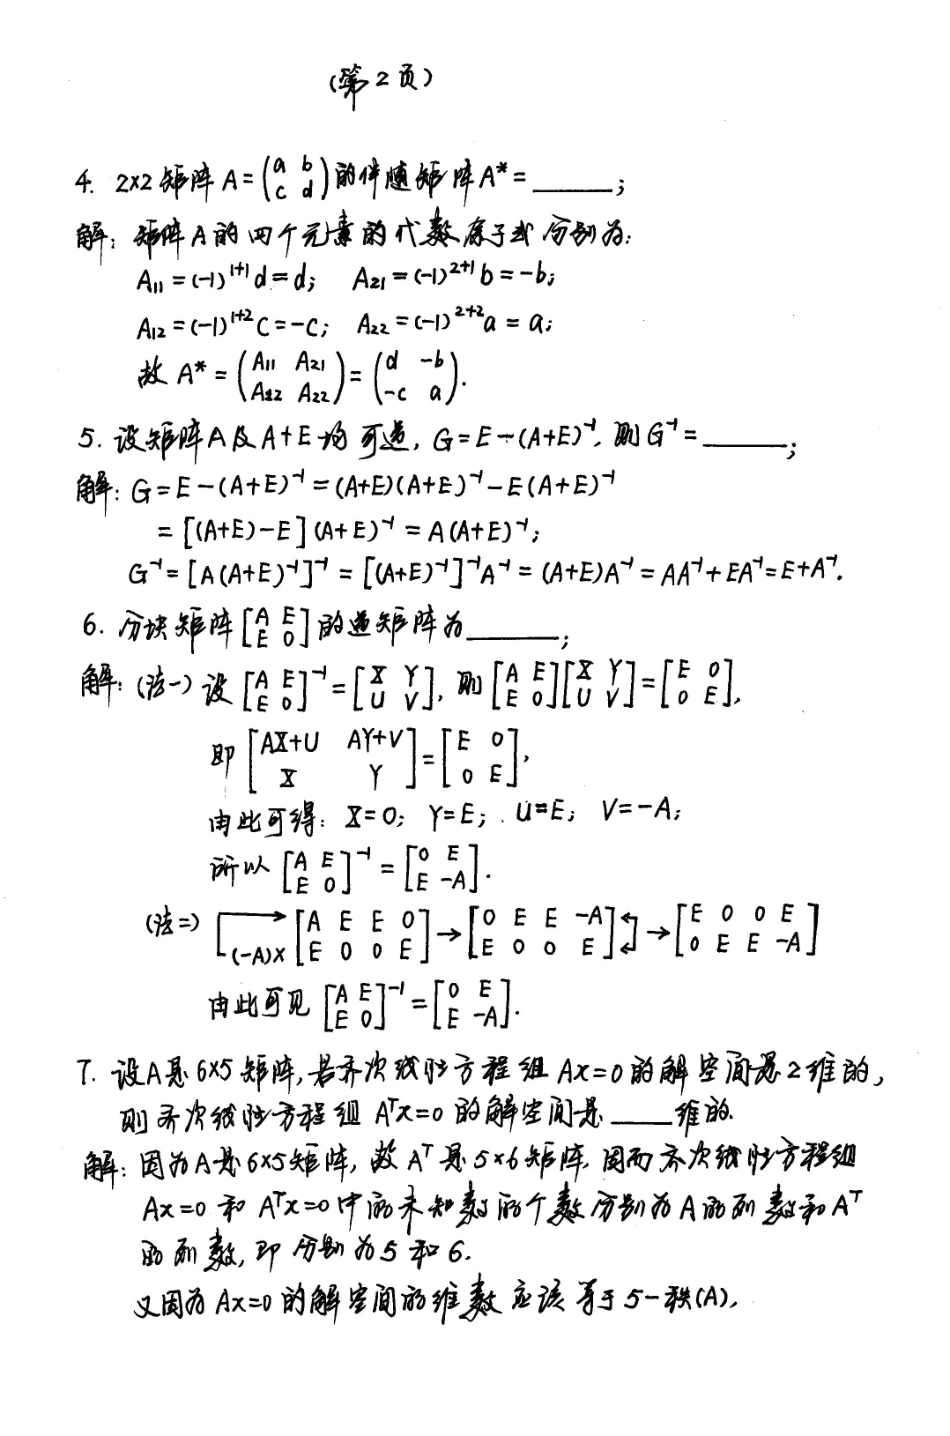 (第2页)
4. 2×2矩阵A=(a b / c d)的伴随矩阵A*=______;
解: 矩阵A的四个元素的代数余子式分别为:
A₁₁=(-1)¹⁺¹d=d; A₂₁=(-1)²⁺¹b=-b;
A₁₂=(-1)¹⁺²C=-C; A₂₂=(-1)²⁺²a=a;
故 A*=(A₁₁ A₂₁ / A₁₂ A₂₂)=(d -b / -c a).
5. 设矩阵A及A+E均可逆, G=E-(A+E)⁻¹, 则G⁻¹=______;
解: G=E-(A+E)⁻¹=(A+E)(A+E)⁻¹-E(A+E)⁻¹
=[(A+E)-E](A+E)⁻¹=A(A+E)⁻¹;
G⁻¹=[A(A+E)⁻¹]⁻¹=[(A+E)⁻¹]⁻¹A⁻¹=(A+E)A⁻¹=AA⁻¹+EA⁻¹=E+A⁻¹.
6. 分块矩阵[A E / E 0]的逆矩阵为______;
解: (法一) 设[A E / E 0]⁻¹=[X Y / U V], 则[A E / E 0][X Y / U V]=[E 0 / 0 E],
即[AX+U AY+V / X Y]=[E 0 / 0 E],
由此可得: X=0; Y=E; U=E; V=-A;
所以[A E / E 0]⁻¹=[0 E / E -A].
(法二) (-A)× [A E E 0 / E 0 0 E]→[0 E E -A / E 0 0 E]→[E 0 0 E / 0 E E -A]
由此可见[A E / E 0]⁻¹=[0 E / E -A].
7. 设A是6×5矩阵, 若齐次线性方程组Ax=0的解空间是2维的,
则齐次线性方程组Aᵀx=0的解空间是____维的.
解: 因为A是6×5矩阵, 故Aᵀ是5×6矩阵, 因而齐次线性方程组
Ax=0和Aᵀx=0中的未知数的个数分别为A的列数和Aᵀ
的列数, 即分别为5和6.
又因为Ax=0的解空间的维数应该等于5-秩(A),